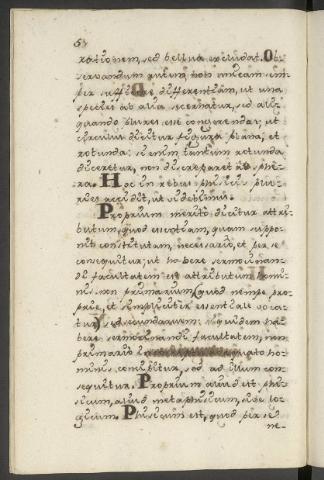 rationem, sed bellua excludat. Ob-
servandum autem, non unicam sem-
per sufficere differentiam, ut una
species ab alia secernatur, sed ali-
quando plures esse congerendas; ut
circulus dicitur figura plana, et
rotunda: si enim tantum rotunda
diceretur, non discreparet à sphæ-
ra. Hoc in rebus phisicis pluries
accidit, ut videbimus.
Proprium merito dicitur attri-
butum, quod essentiam, quam suppo-
nit constitutam, necessario, et per se
consequitur; ut habere sermocinan-
di facultatem est attributum homi-
nis non primarium (quod nempe pro-
prie, et simpliciter essentiale voca-
tur) sed secundarium: siquidem ha-
bere sermocinandi facultatem, non
primario homo
nis concipitur, sed ad illum con-
sequitur. Proprium aliud est phi-
sicum, aliud metaphisicum, sive lo-
gicum. Phisicum est, quod per se
ne-